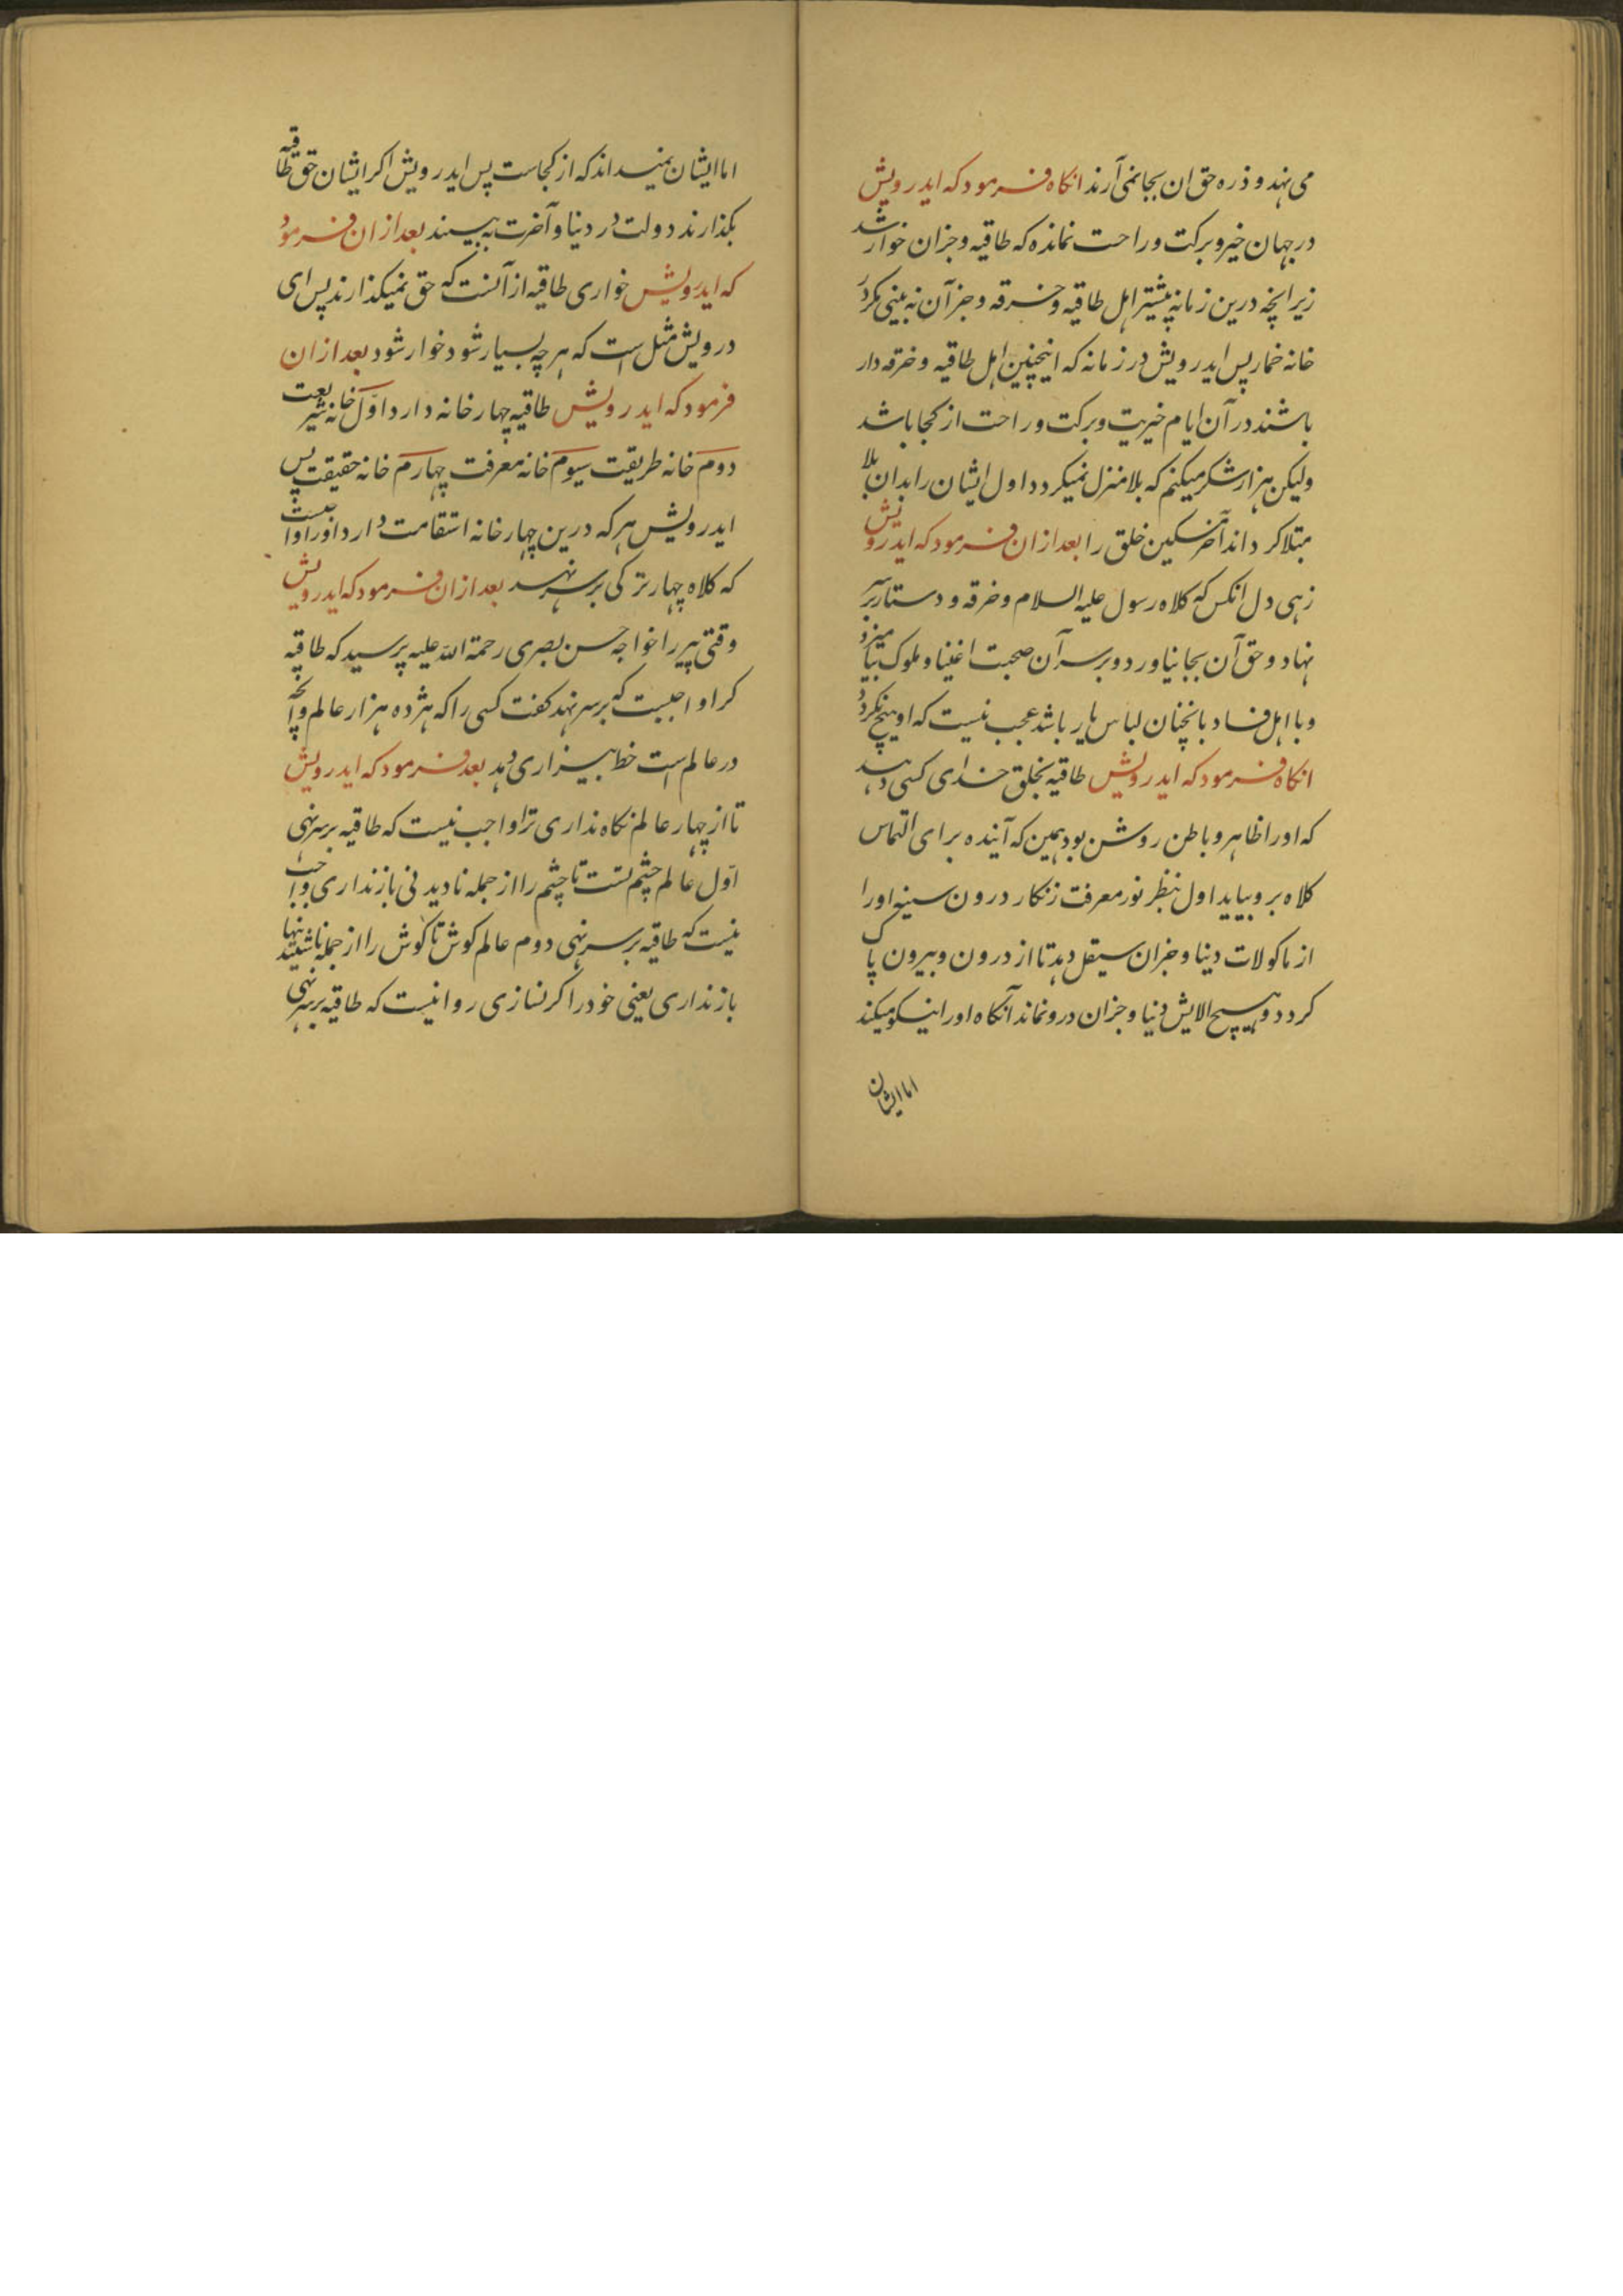 می نهد و ذره حق ان بجا نمی آرند انکاه فرمود که ایدرویش
در جهان خیر و برکت و راحت نمانده که طاقیه و جزان خوار شد
زیرانچه درین زمانه پیشتر اهل طاقیه و خرقه و جز آن نه بینی مکر در
خانه خمار پس ایدرویش در زمانه که اینچنین اهل طاقیه و خرقه دار
باشند در آن ایام خیریت و برکت و راحت از کجا باشد
ولیکن هزار شکر میکنم که بلا منزل نمیکردد اول ایشان را بدان بلا
مبتلا کرداند آخر مسکین خلق را بعد ازان فرمود که ایدرویش
زهی دل انکس که کلاه رسول علیه السلام و خرقه و دستار بر سر
نهاد و حق آن بجا نیاورد و بر سر آن صحبت اغنیا و ملوک
و با اهل فساد بانچنان لباس یار باشد عجب نیست که او هیچ نکردد
انکاه فرمود که ایدرویش طاقیه بخلق خدای کسی دهد
که اورا ظاهر و باطن روشن بود همین که آینده برای التماس
کلاه برو بیاید اول بنظر نور معرفت زنکار درون سینه اورا
از ماکولات دنیا و جزان سیقل دهد تا از درون و بیرون پاک
کردد و هیچ الایش دنیا و جزان درو نماند آنکاه اورا نیکو میکند
اما ایشان
اما ایشان نمیداند که از کجاست پس ایدرویش اکر ایشان حق طاقیه
بکذارند دولت در دنیا و آخرت به بینند بعد ازان فرمود
که ایدرویش خواری طاقیه از آنست که حق نمیکذارند پس ای
درویش مثل است که هر چه بسیار شود خوار شود بعد ازان
فرمود که ایدرویش طاقیه چهار خانه دارد اول خانه شریعت
دوم خانه طریقت سیوم خانه معرفت چهارم خانه حقیقت پس
ایدرویش هر که درین چهار خانه استقامت دارد اورا واجبست
که کلاه چهار ترکی بر سر نهد بعد ازان فرمود که ایدرویش
وقتی پیر را خواجه حسن بصری رحمة الله علیه پرسید که طاقیه
کرا واجبست که بر سر نهد کفت کسی را که هژده هزار عالم و آنچه
در عالم است خط بیزاری دهد بعد فرمود که ایدرویش
تا از چهار عالم نکاه نداری ترا واجب نیست که طاقیه بر سر نهی
اول عالم چشم تست تا چشم را از جمله نادیدنی باز نداری واجب
نیست که طاقیه بر سر نهی دوم عالم کوش تا کوش را از جمله ناشنیدنیها
باز نداری یعنی خود را کر نسازی روا نیست که طاقیه بر سر نهی